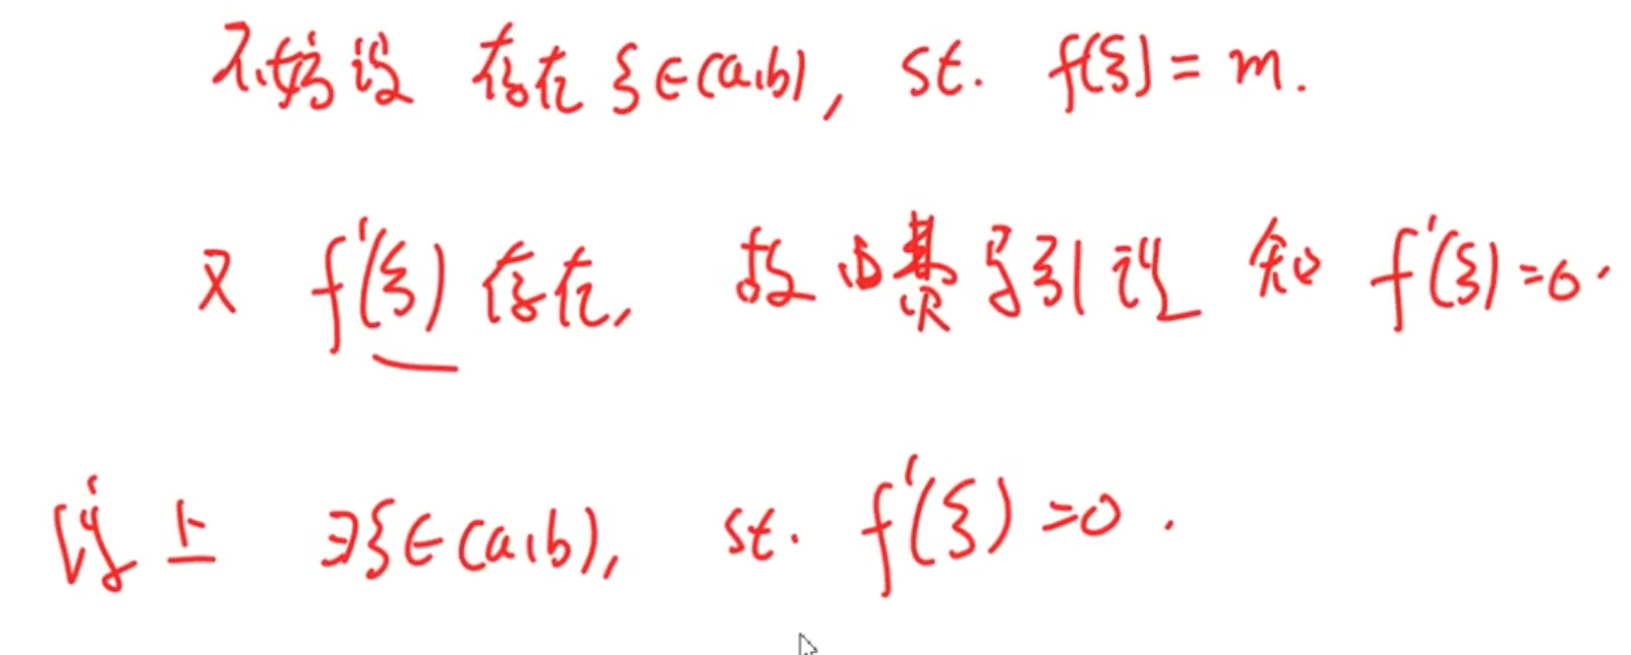 不妨设 存在 ξ∈(a,b), st. f(ξ)=m.
又 f'(ξ) 存在, 故由费马引理 知 f'(ξ)=0.
综上 ∃ξ∈(a,b), st. f'(ξ)=0.